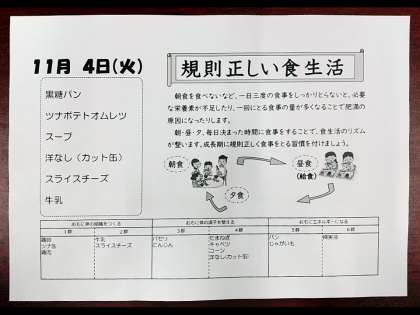 11月 4日(火)
規則正しい食生活
黒糖パン
ツナポテトオムレツ
スープ
洋なし(カット缶)
スライスチーズ
牛乳
朝食を食べないなど、一日三度の食事をしっかりとらないと、必要
な栄養素が不足したり、一回にとる食事の量が多くなることで肥満の
原因になったりします。
朝・昼・夕、毎日決まった時間に食事をすることで、食生活のリズム
が整います。成長期に規則正しく食事をとる習慣を付けましょう。
朝食
昼食
(給食)
夕食
おもに体の組織をつくる
おもに体の調子を整える
おもにエネルギーになる
1群
2群
3群
4群
5群
6群
ツナ缶
牛乳
スライスチーズ
パセリ
にんじん
たまねぎ
キャベツ
コーン
洋なし(カット缶)
パン
じゃがいも